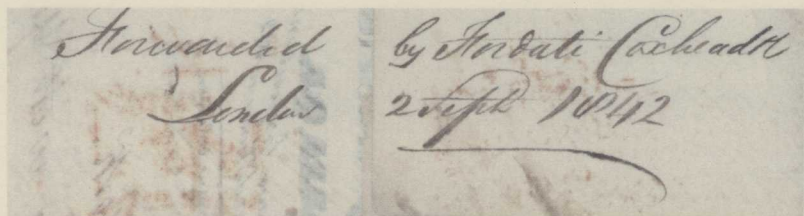 Forwarded by Fordati Coxhead &
London 2 Sept 1842